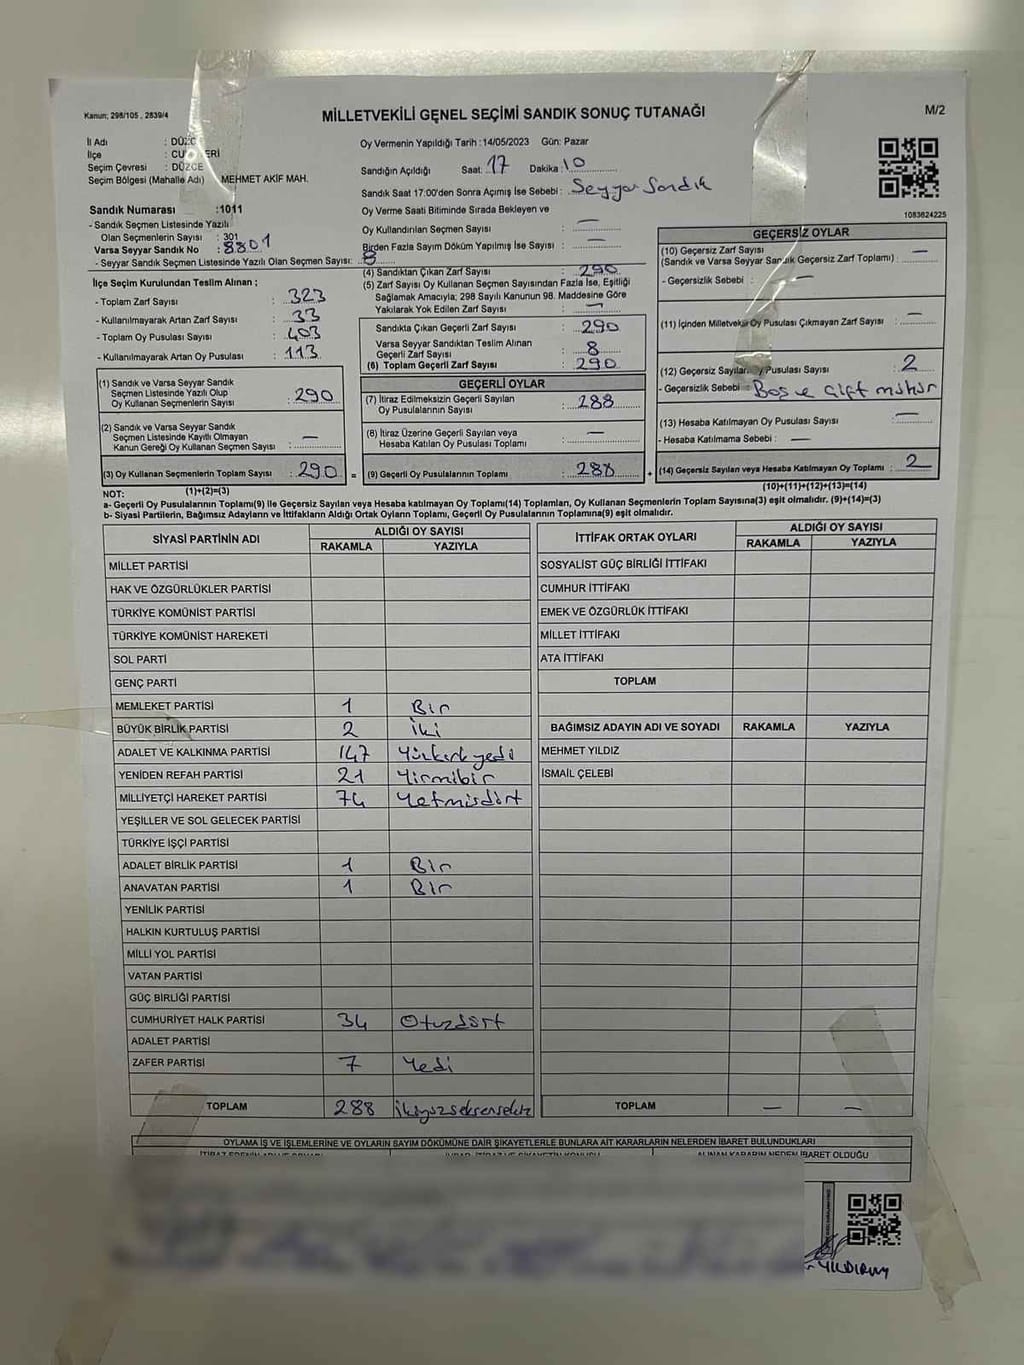 Kanun; 298/105 , 2839/4
MİLLETVEKİLİ GENEL SEÇİMİ SANDIK SONUÇ TUTANAĞI
M/2
İl Adı :
İlçe :
Seçim Çevresi : DÜZCE
Seçim Bölgesi (Mahalle Adı) MEHMET AKİF MAH.
Sandık Numarası :1011
- Sandık Seçmen Listesinde Yazılı
Olan Seçmenlerin Sayısı : 301
Varsa Seyyar Sandık No : 8801
- Seyyar Sandık Seçmen Listesinde Yazılı Olan Seçmen Sayısı: 8
Oy Vermenin Yapıldığı Tarih :14/05/2023 Gün: Pazar
Sandığın Açıldığı Saat: 17 Dakika: 10
Sandık Saat 17:00'den Sonra Açımış İse Sebebi : Seyyar Sandık
Oy Verme Saati Bitiminde Sırada Bekleyen ve
Oy Kullandırılan Seçmen Sayısı : —
Birden Fazla Sayım Döküm Yapılmış İse Sayısı : —
1083624225
İlçe Seçim Kurulundan Teslim Alınan ;
- Toplam Zarf Sayısı : 323
- Kullanılmayarak Artan Zarf Sayısı : 33
- Toplam Oy Pusulası Sayısı : 403
- Kullanılmayarak Artan Oy Pusulası : 113
(1) Sandık ve Varsa Seyyar Sandık
Seçmen Listesinde Yazılı Olup
Oy Kullanan Seçmenlerin Sayısı : 290
(2) Sandık ve Varsa Seyyar Sandık
Seçmen Listesinde Kayıtlı Olmayan
Kanun Gereği Oy Kullanan Seçmen Sayısı : —
(3) Oy Kullanan Seçmenlerin Toplam Sayısı : 290 =
(1)+(2)=(3)
(4) Sandıktan Çıkan Zarf Sayısı : 290
(5) Zarf Sayısı Oy Kullanan Seçmen Sayısından Fazla İse, Eşitliği
Sağlamak Amacıyla; 298 Sayılı Kanunun 98. Maddesine Göre
Yakılarak Yok Edilen Zarf Sayısı : —
Sandıkta Çıkan Geçerli Zarf Sayısı : 290
Varsa Seyyar Sandıktan Teslim Alınan
Geçerli Zarf Sayısı : 8
(6) Toplam Geçerli Zarf Sayısı : 290
GEÇERLİ OYLAR
(7) İtiraz Edilmeksizin Geçerli Sayılan
Oy Pusulalarının Sayısı : 288
(8) İtiraz Üzerine Geçerli Sayılan veya
Hesaba Katılan Oy Pusulası Toplamı : —
(9) Geçerli Oy Pusulalarının Toplamı : 288 +
GEÇERSİZ OYLAR
(10) Geçersiz Zarf Sayısı
(Sandık ve Varsa Seyyar Sandık Geçersiz Zarf Toplamı) : —
- Geçersizlik Sebebi : —
(11) İçinden Milletvekili Oy Pusulası Çıkmayan Zarf Sayısı : —
(12) Geçersiz Sayılan Oy Pusulası Sayısı : 2
- Geçersizlik Sebebi : Boş ve Çift mühür
(13) Hesaba Katılmayan Oy Pusulası Sayısı : —
- Hesaba Katılmama Sebebi : —
(14) Geçersiz Sayılan veya Hesaba Katılmayan Oy Toplamı : 2
(10)+(11)+(12)+(13)=(14)
NOT:
a- Geçerli Oy Pusulalarının Toplamı(9) ile Geçersiz Sayılan veya Hesaba katılmayan Oy Toplamı(14) Toplamları, Oy Kullanan Seçmenlerin Toplam Sayısına(3) eşit olmalıdır. (9)+(14)=(3)
b- Siyasi Partilerin, Bağımsız Adayların ve İttifakların Aldığı Ortak Oyların Toplamı, Geçerli Oy Pusulalarının Toplamına(9) eşit olmalıdır.
SİYASİ PARTİNİN ADI ALDIĞI OY SAYISI
RAKAMLA YAZIYLA
MİLLET PARTİSİ
HAK VE ÖZGÜRLÜKLER PARTİSİ
TÜRKİYE KOMÜNİST PARTİSİ
TÜRKİYE KOMÜNİST HAREKETİ
SOL PARTİ
GENÇ PARTİ
MEMLEKET PARTİSİ 1 Bir
BÜYÜK BİRLİK PARTİSİ 2 İki
ADALET VE KALKINMA PARTİSİ 147 Yüzkırk yedi
YENİDEN REFAH PARTİSİ 21 Yirmibir
MİLLİYETÇİ HAREKET PARTİSİ 74 Yetmişdört
YEŞİLLER VE SOL GELECEK PARTİSİ
TÜRKİYE İŞÇİ PARTİSİ
ADALET BİRLİK PARTİSİ 1 Bir
ANAVATAN PARTİSİ 1 Bir
YENİLİK PARTİSİ
HALKIN KURTULUŞ PARTİSİ
MİLLİ YOL PARTİSİ
VATAN PARTİSİ
GÜÇ BİRLİĞİ PARTİSİ
CUMHURİYET HALK PARTİSİ 34 Otuzdört
ADALET PARTİSİ
ZAFER PARTİSİ 7 Yedi
TOPLAM 288 ikiyüzseksensekiz
İTTİFAK ORTAK OYLARI ALDIĞI OY SAYISI
RAKAMLA YAZIYLA
SOSYALİST GÜÇ BİRLİĞİ İTTİFAKI
CUMHUR İTTİFAKI
EMEK VE ÖZGÜRLÜK İTTİFAKI
MİLLET İTTİFAKI
ATA İTTİFAKI
TOPLAM
BAĞIMSIZ ADAYIN ADI VE SOYADI RAKAMLA YAZIYLA
MEHMET YILDIZ
İSMAİL ÇELEBİ
TOPLAM — —
OYLAMA İŞ VE İŞLEMLERİNE VE OYLARIN SAYIM DÖKÜMÜNE DAİR ŞİKAYETLERLE BUNLARA AİT KARARLARIN NELERDEN İBARET BULUNDUKLARI
ALINAN KARARIN NEDEN İBARET OLDUĞU
YILDIRIM